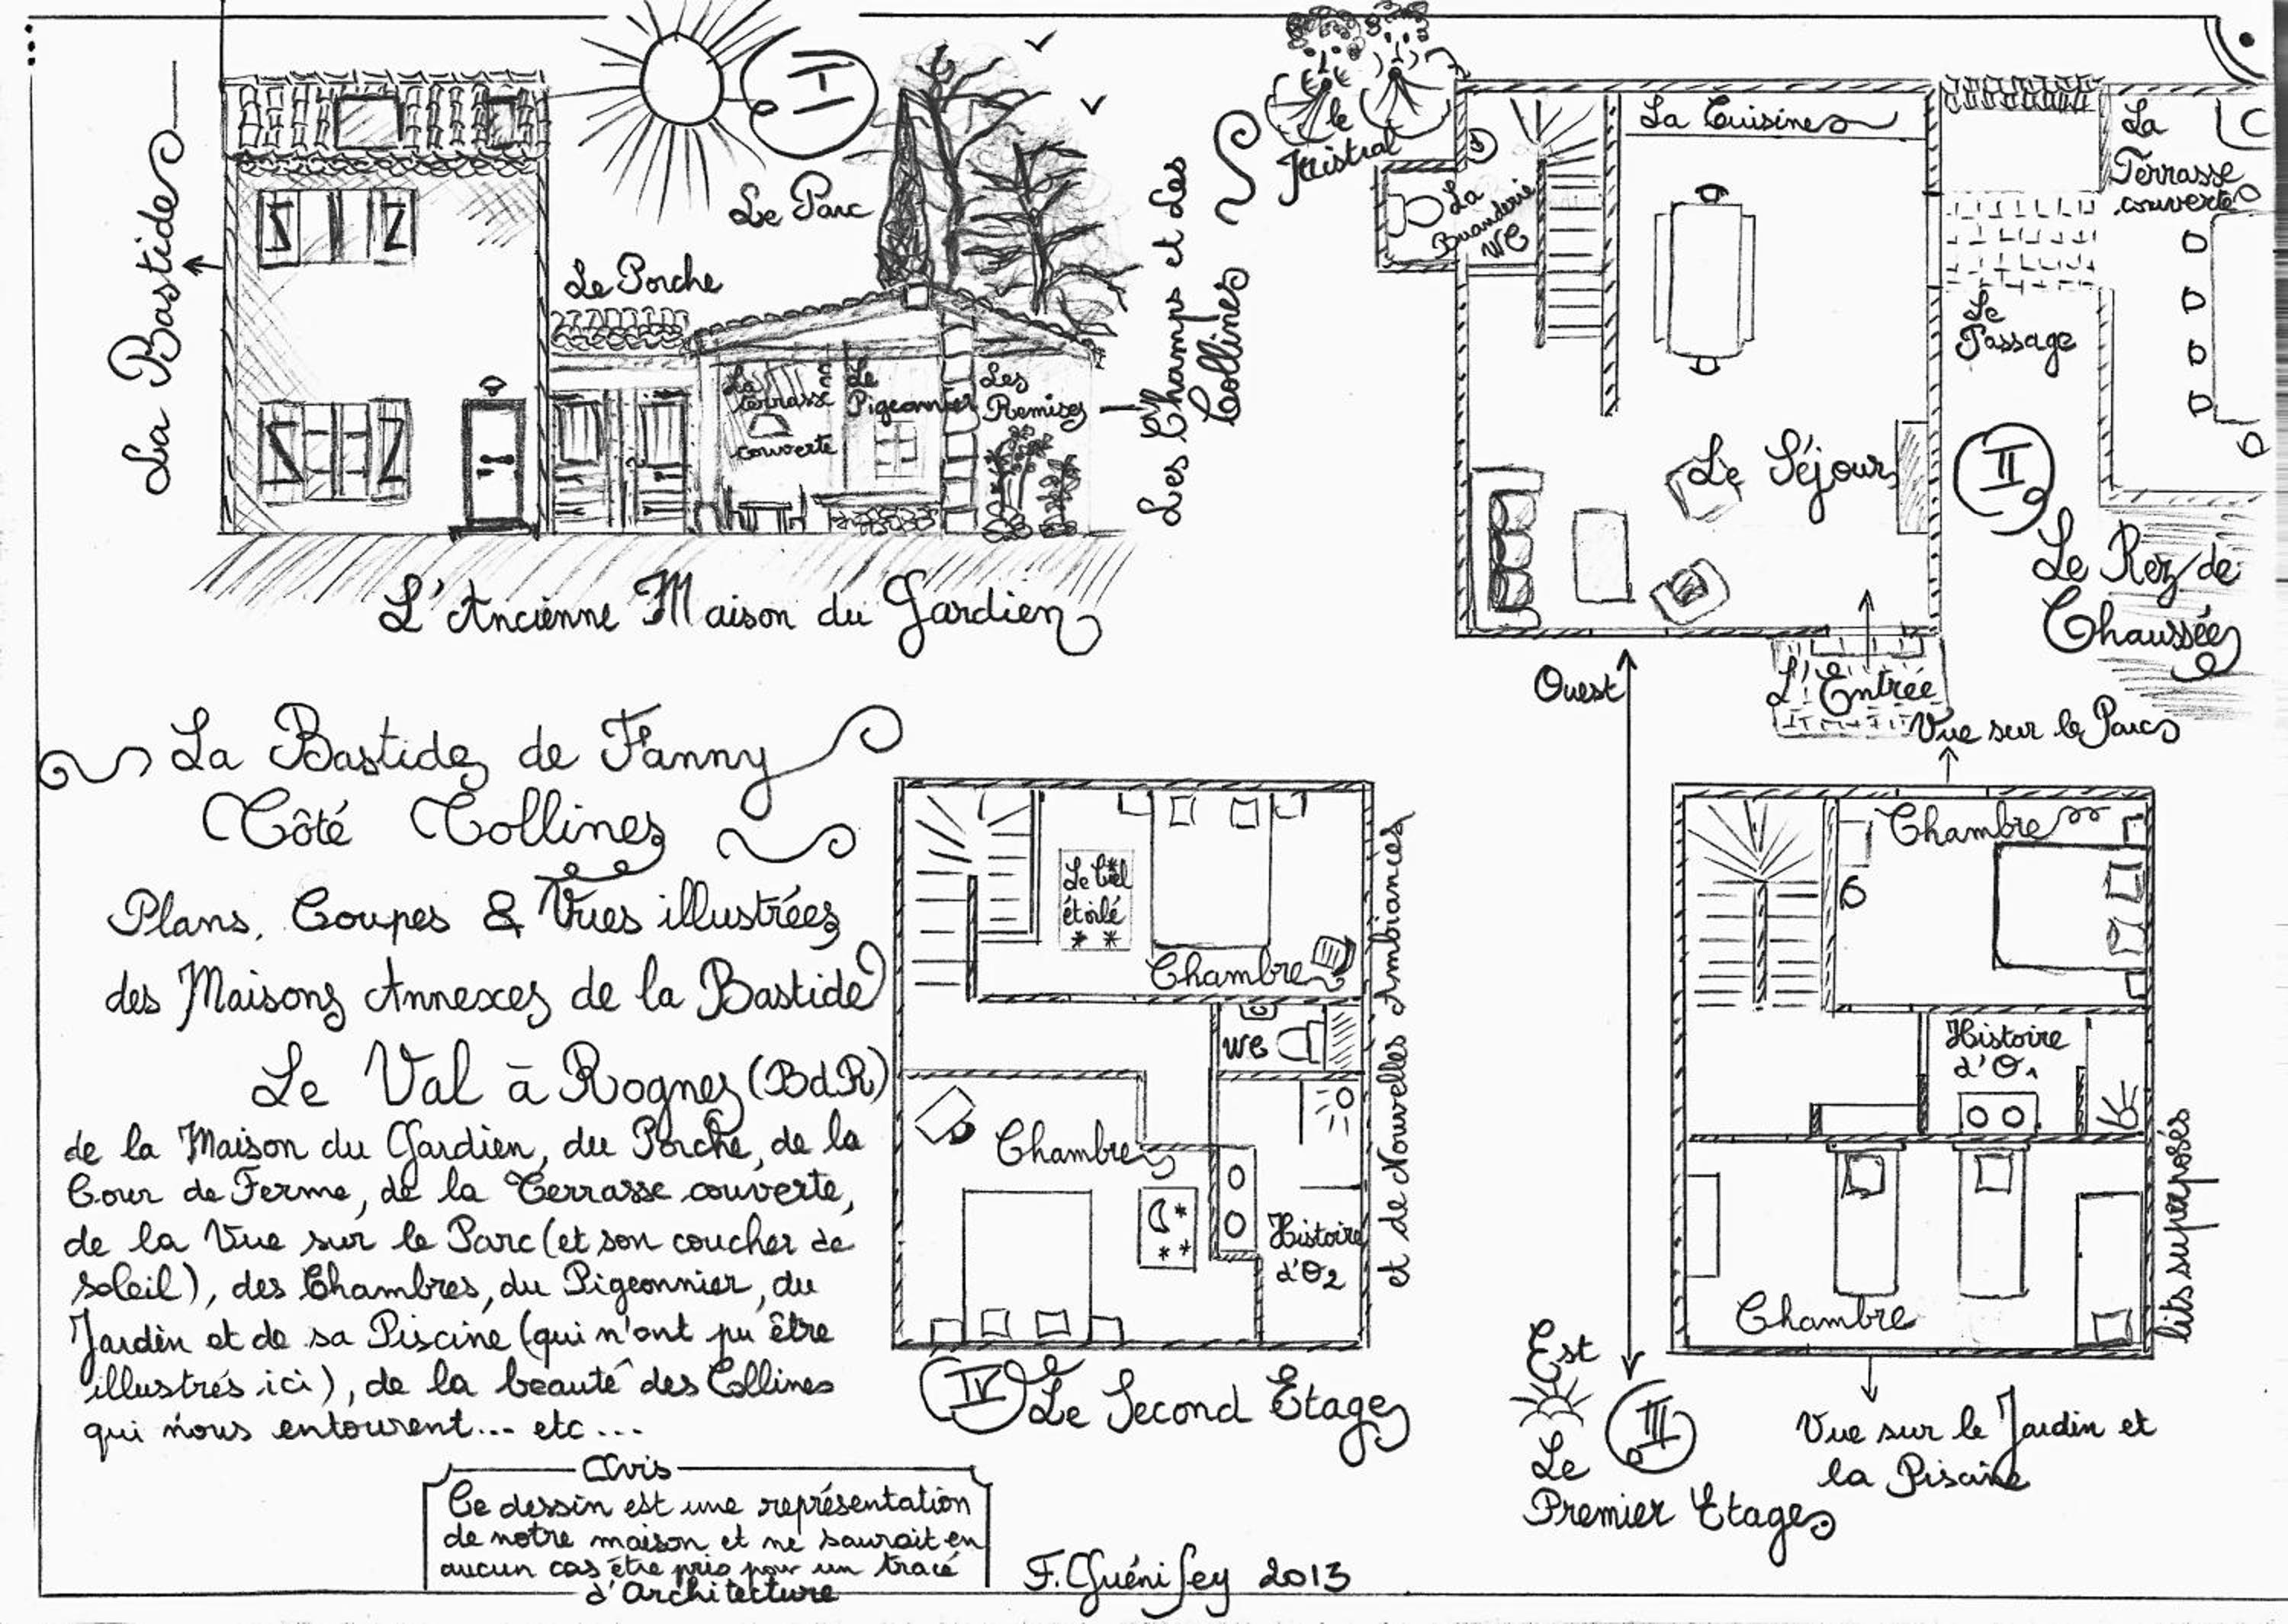 La Bastide
I
Le Parc
Le Porche
La
terrasse
couverte
Le
Pigeonnier
Les
Remises
Les Champs et Les
Collines
L'Ancienne Maison du Gardien
le
Mistral
La Cuisine
La
Buanderie
WC
Le Séjour
La
Terrasse
couverte
Le
Passage
II
Le Rez de
Chaussée
L'Entrée
Ouest
Vue sur le Parc
La Bastide de Fanny
Côté Collines
Plans, Coupes & Vues illustrées
des Maisons Annexes de la Bastide
Le Val à Rognes (BdR)
de la Maison du Gardien, du Porche, de la
Cour de Ferme, de la Terrasse couverte,
de la Vue sur le Parc (et son coucher de
soleil), des Chambres, du Pigeonnier, du
Jardin et de sa Piscine (qui n'ont pu être
illustrés ici), de la beauté des Collines
qui nous entourent... etc...
Avis
Ce dessin est une représentation
de notre maison et ne saurait en
aucun cas être pris pour un tracé
d'Architecture
F. Guénifey 2013
Le Ciel
étoilé
Chambre
WC
Chambre
Histoire
d'O2
et de Nouvelles Ambiances
IV Le Second Etage
Chambre
Histoire
d'O1
Chambre
lits superposés
Est
III
Le
Premier Etage
Vue sur le Jardin et
la Piscine